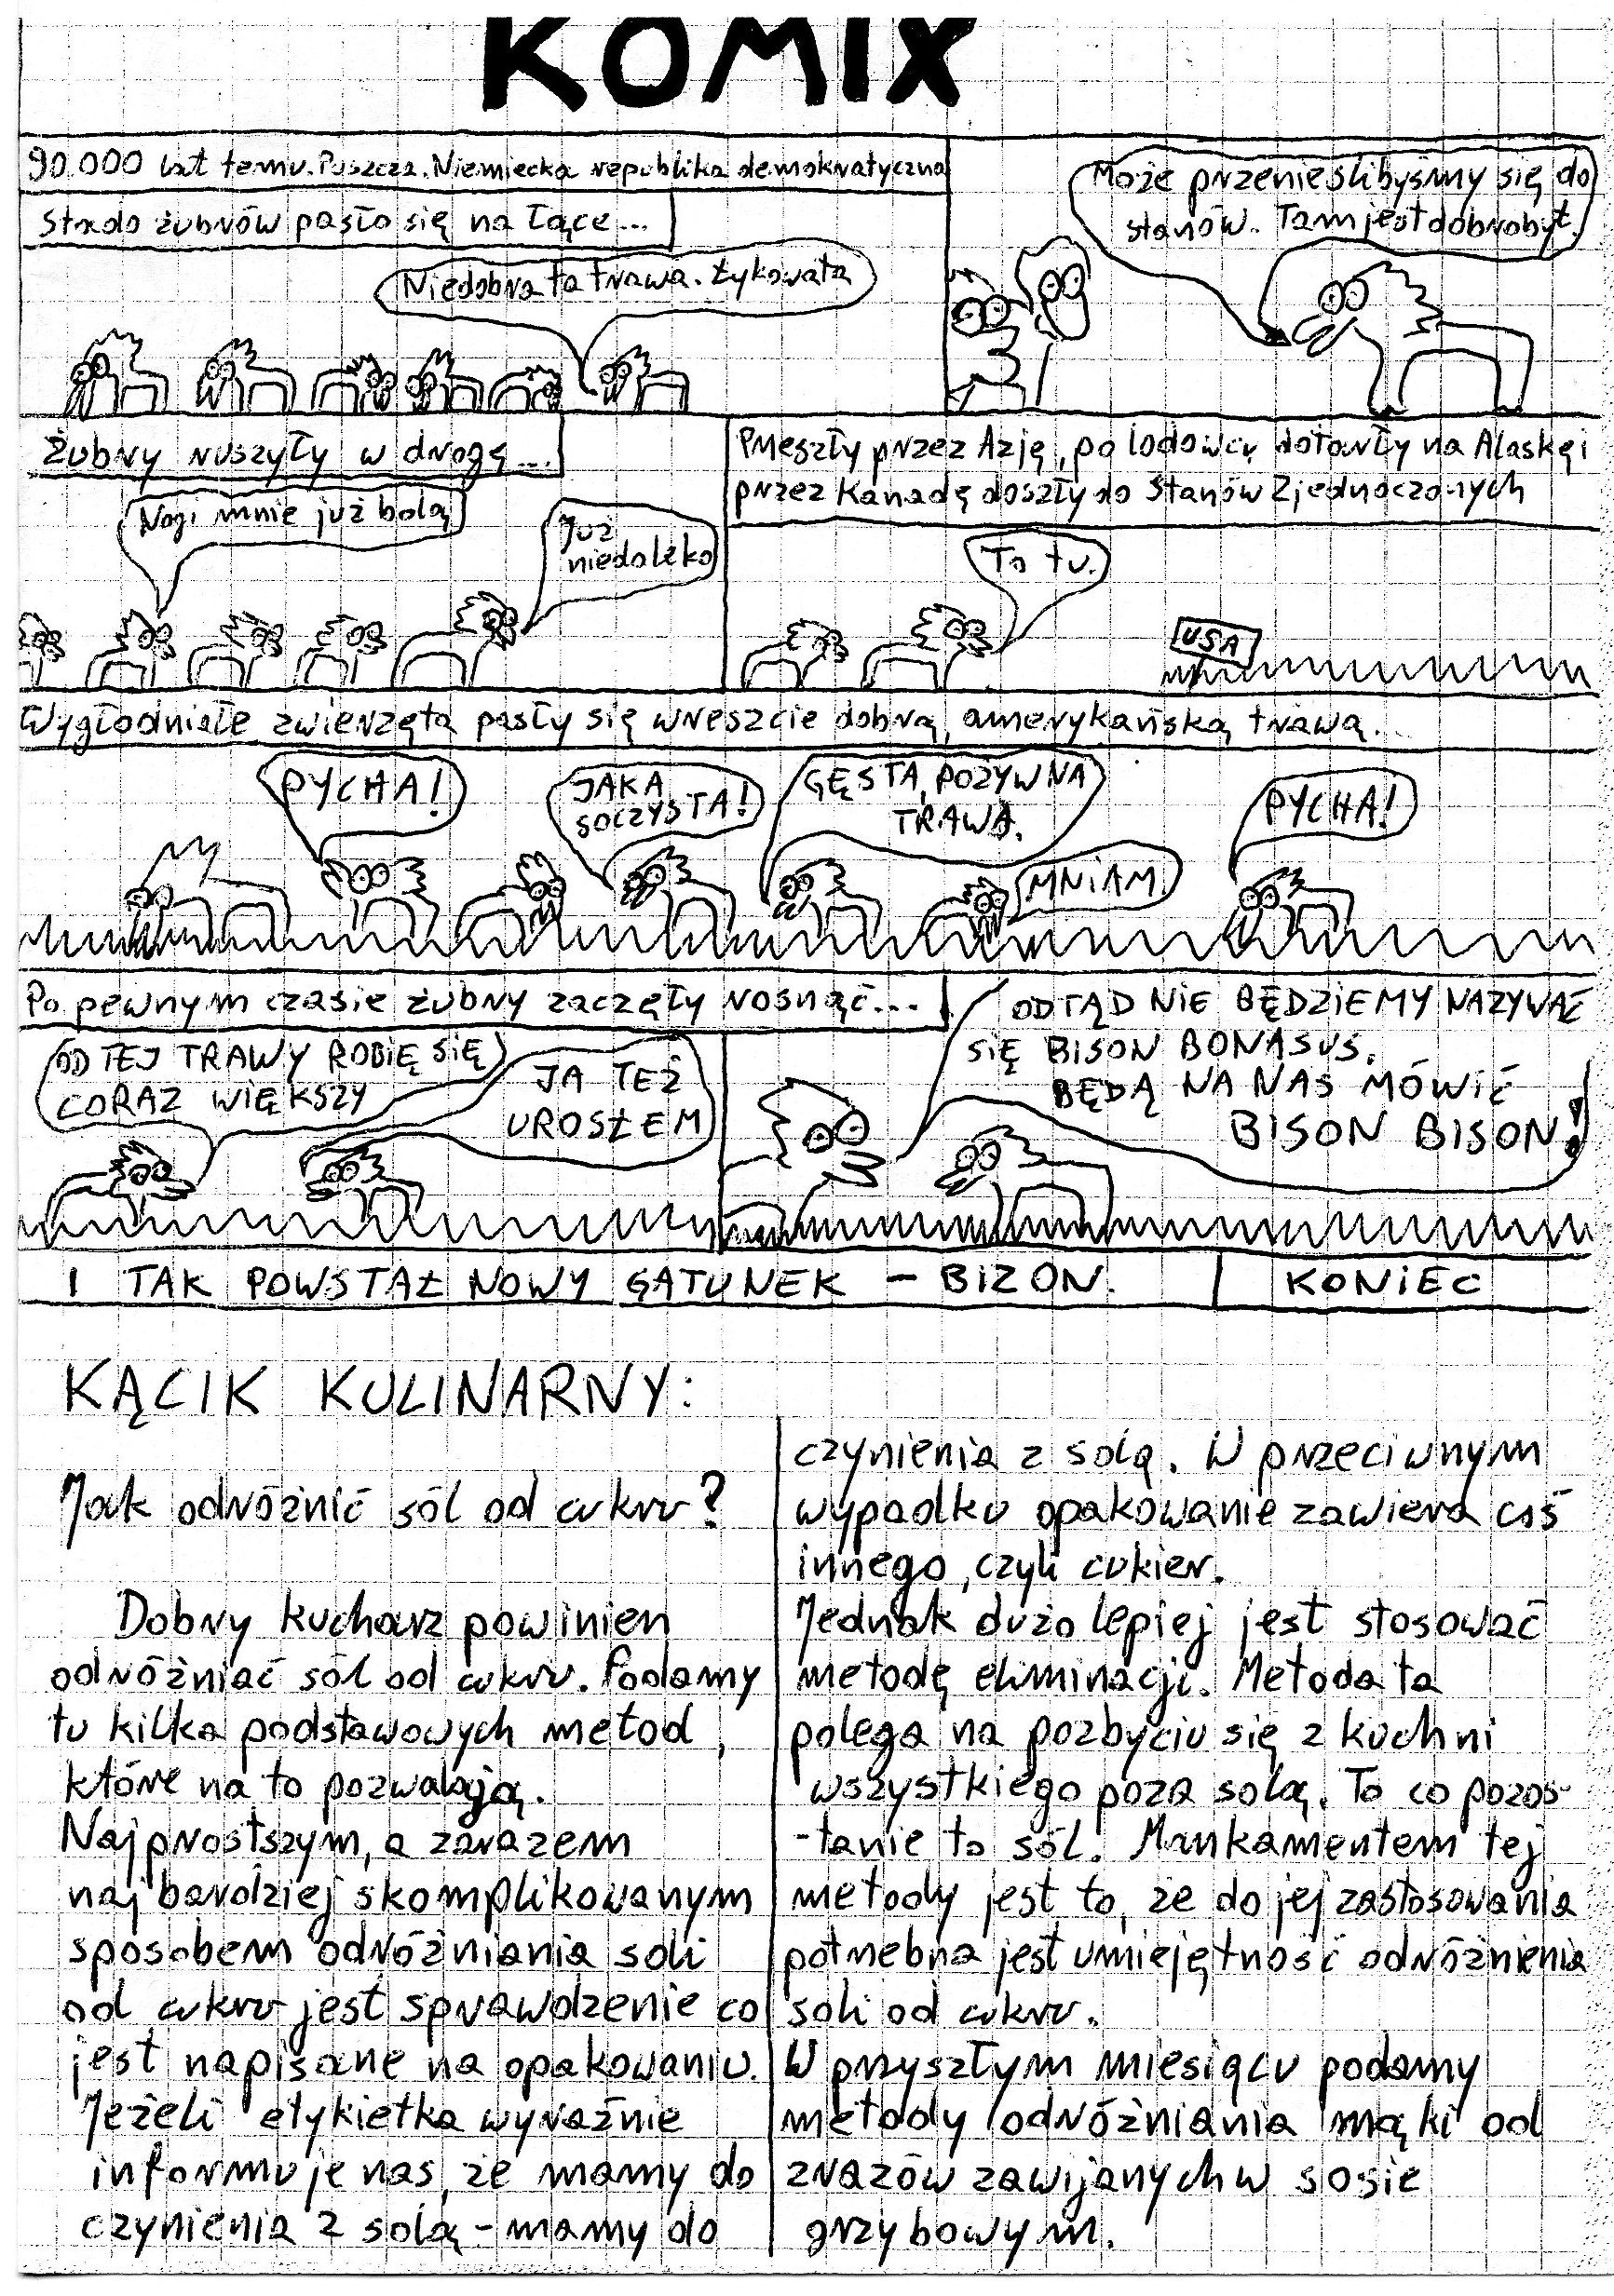 KOMIX
90.000 lat temu. Puszcza. Niemiecka republika demokratyczna
Stado żubrów pasło się na łące...
Niedobra ta trawa. Łykowata
Może przenieślibyśmy się do
stanów. Tam jest dobrobyt.
Żubry ruszyły w drogę...
Nogi mnie już bolą
Już
niedaleko
Przeszły przez Azję, po lodowcu dotarły na Alaskę i
przez Kanadę doszły do Stanów Zjednoczonych
To tu.
USA
Wygłodniałe zwierzęta pasły się wreszcie dobrą, amerykańską trawą...
PYCHA!
JAKA
SOCZYSTA!
GĘSTA, POŻYWNA
TRAWA.
MNIAM
PYCHA!
Po pewnym czasie żubry zaczęły rosnąć...
OD TEJ TRAWY ROBIĘ SIĘ
CORAZ WIĘKSZY
JA TEŻ
UROSŁEM
ODTĄD NIE BĘDZIEMY NAZYWAĆ
SIĘ BISON BONASUS.
BĘDĄ NA NAS MÓWIĆ
BISON BISON!
I TAK POWSTAŁ NOWY GATUNEK – BIZON.
KONIEC
KĄCIK KULINARNY:
Jak odróżnić sól od cukru?
Dobry kucharz powinien
odróżniać sól od cukru. Podamy
tu kilka podstawowych metod,
które na to pozwalają.
Najprostszym, a zarazem
najbardziej skomplikowanym
sposobem odróżniania soli
od cukru jest sprawdzenie co
jest napisane na opakowaniu.
Jeżeli etykietka wyraźnie
informuje nas, że mamy do
czynienia z solą – mamy do
czynienia z solą. W przeciwnym
wypadku opakowanie zawiera coś
innego, czyli cukier.
Jednak dużo lepiej jest stosować
metodę eliminacji. Metoda ta
polega na pozbyciu się z kuchni
wszystkiego poza solą. To co pozos-
-tanie to sól. Mankamentem tej
metody jest to, że do jej zastosowania
potrzebna jest umiejętność odróżnienia
soli od cukru.
W przyszłym miesiącu podamy
metody odróżniania mąki od
zrazów zawijanych w sosie
grzybowym.